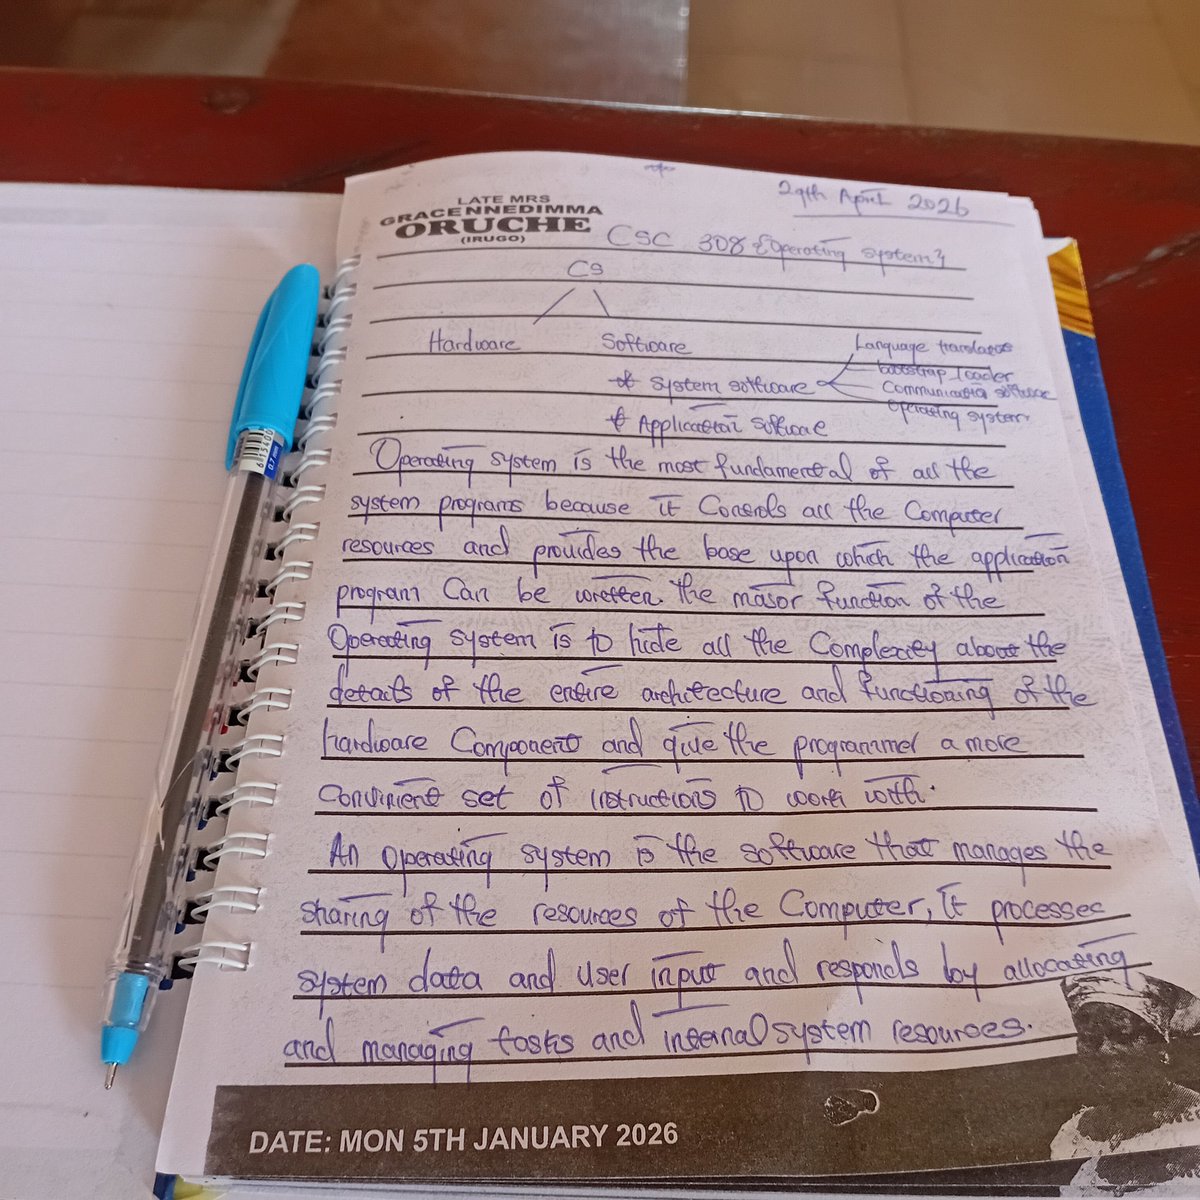 29th April 2026
LATE MRS
GRACENNEDIMMA
ORUCHE
(IRUGO)
CSC 308 {Operating system}
CS
Hardware Software
Language translator
* System software
bootstrap loader
Communication software
operating system
* Application software
Operating system is the most fundamental of all the
system programs because it Controls all the Computer
resources and provides the base upon which the application
program Can be written. The major function of the
Operating system is to hide all the Complexity about the
details of the entire architecture and functioning of the
hardware Component and give the programmer a more
Convinient set of instructions to work with.
An operating system is the software that manages the
sharing of the resources of the Computer, It processes
system data and user input and responds by allocating
and managing tasks and internal system resources.
DATE: MON 5TH JANUARY 2026
0.7 mm